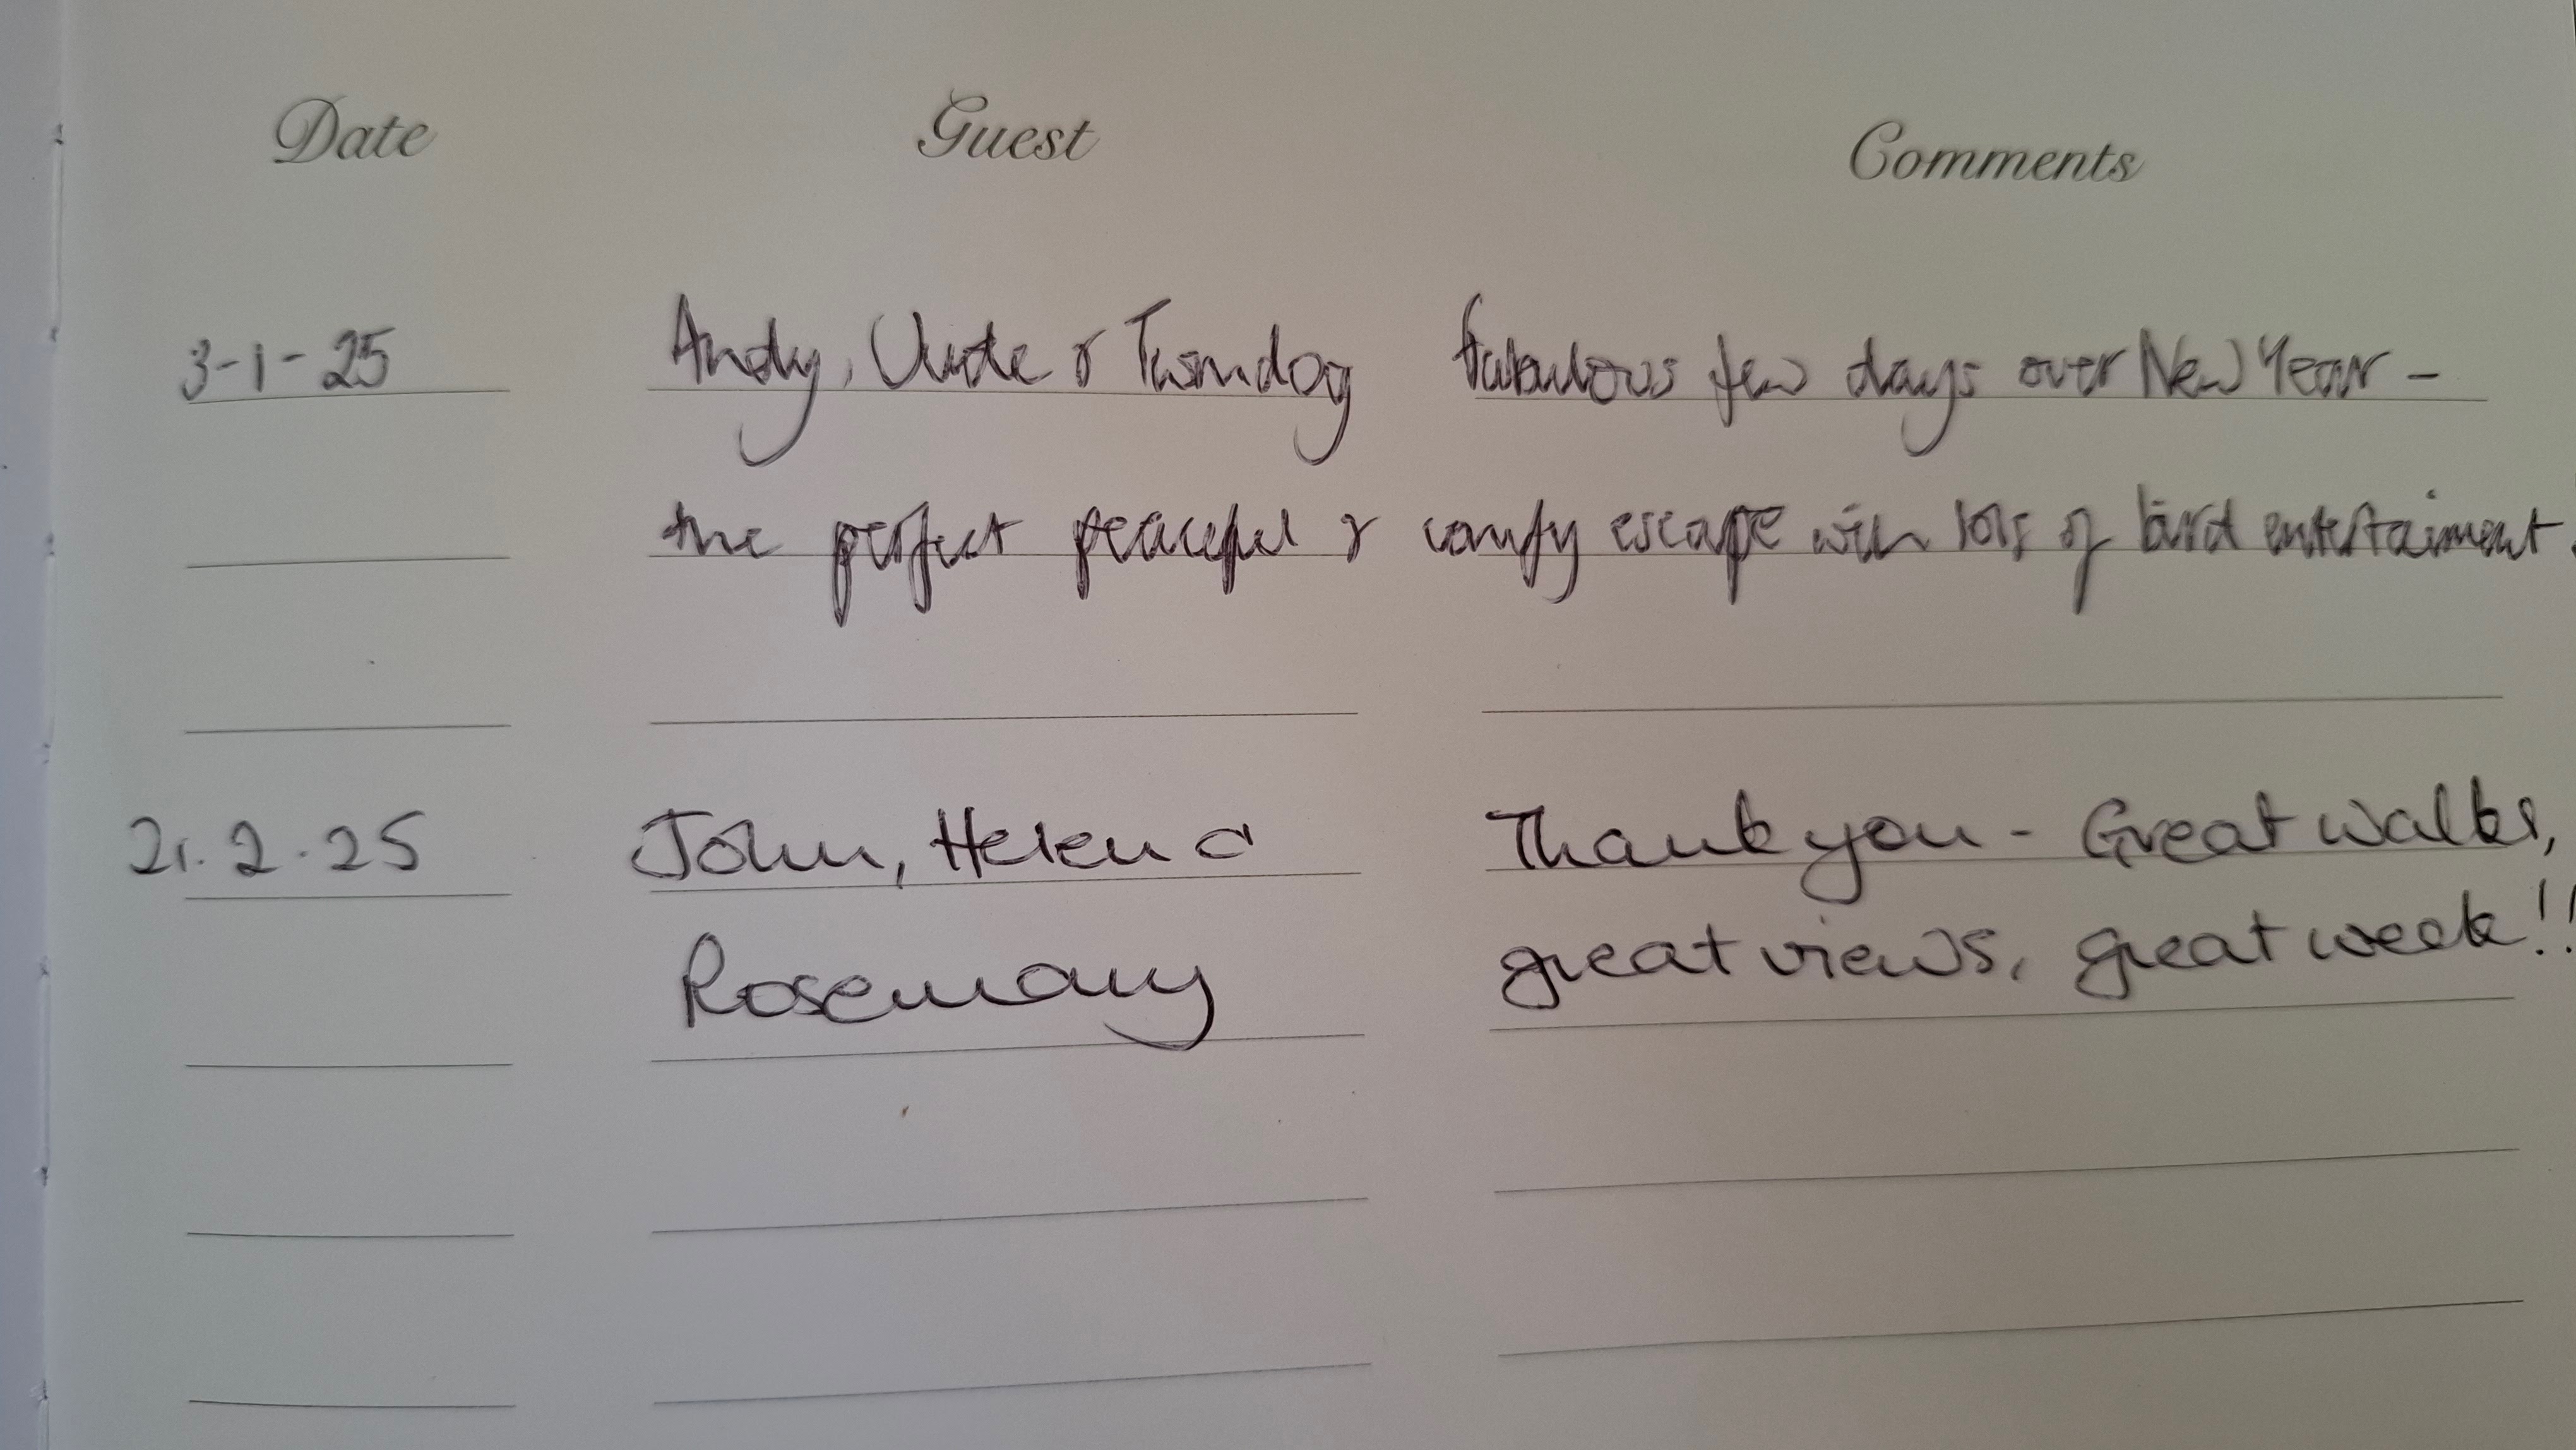 Date Guest Comments
3-1-25 Andy, & Fabulous few days over New Year -
the perfect peaceful & comfy escape with lots of bird entertainment.
21.2.25 John, Helen & Thank you - Great walks,
Rosemary great views, great week!!